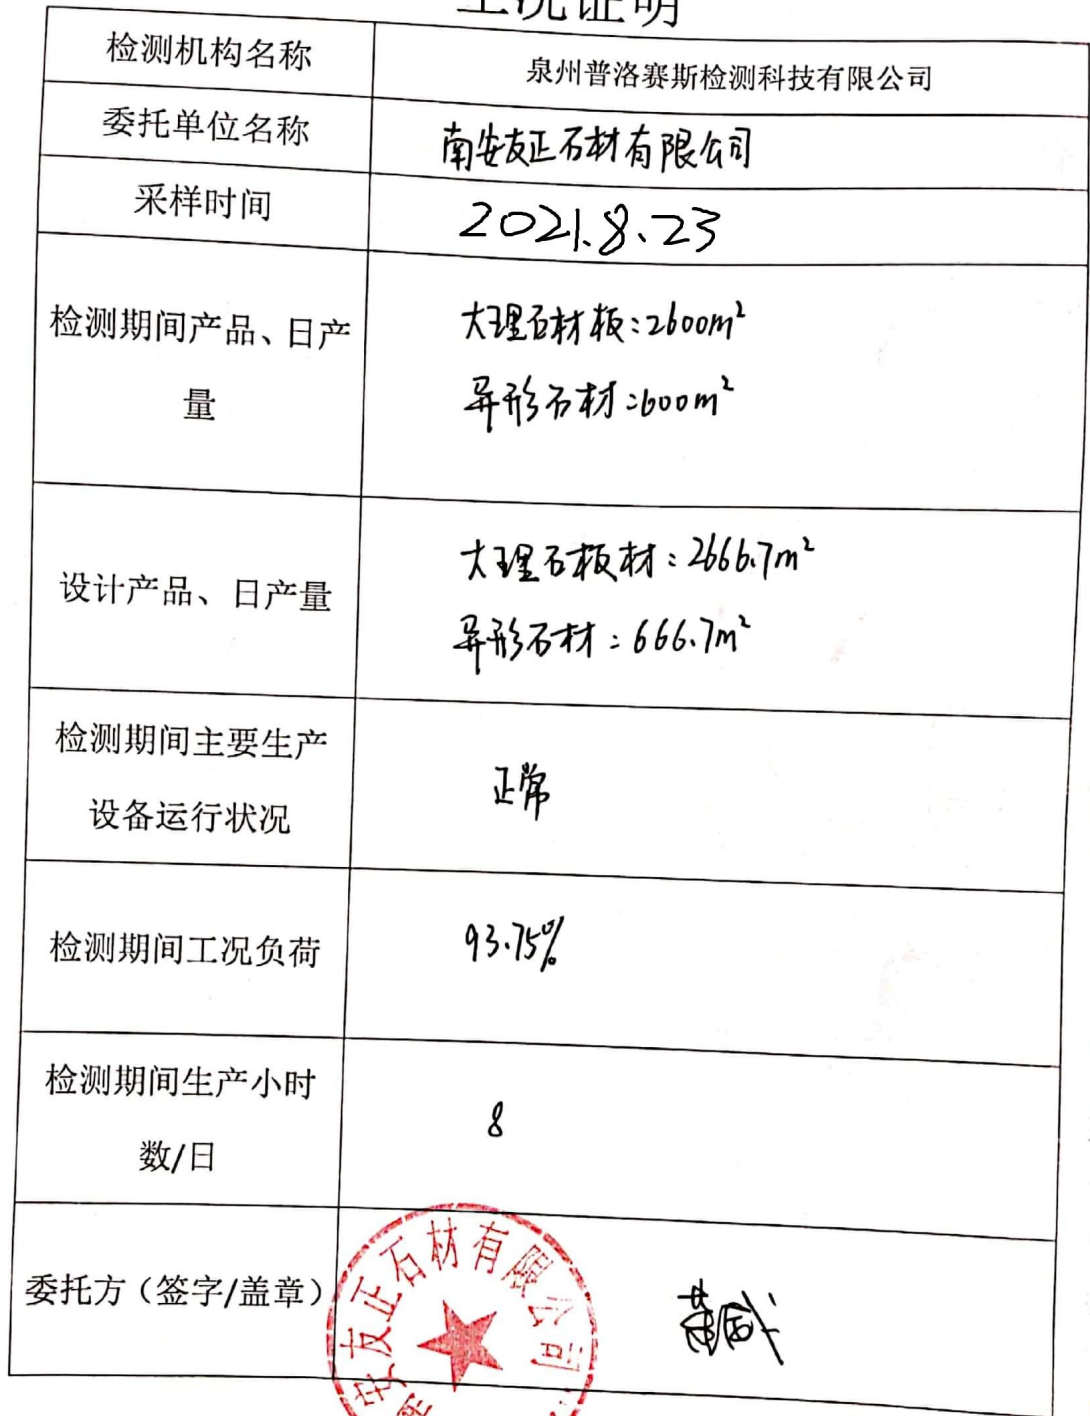 工况证明
检测机构名称
泉州普洛赛斯检测科技有限公司
委托单位名称
南安友正石材有限公司
采样时间
2021.8.23
检测期间产品、日产
量
大理石材板:2600m²
异形石材:600m²
设计产品、日产量
大理石板材:2666.7m²
异形石材:666.7m²
检测期间主要生产
设备运行状况
正常
检测期间工况负荷
93.75%
检测期间生产小时
数/日
8
委托方（签字/盖章）
南安友正石材有限公司